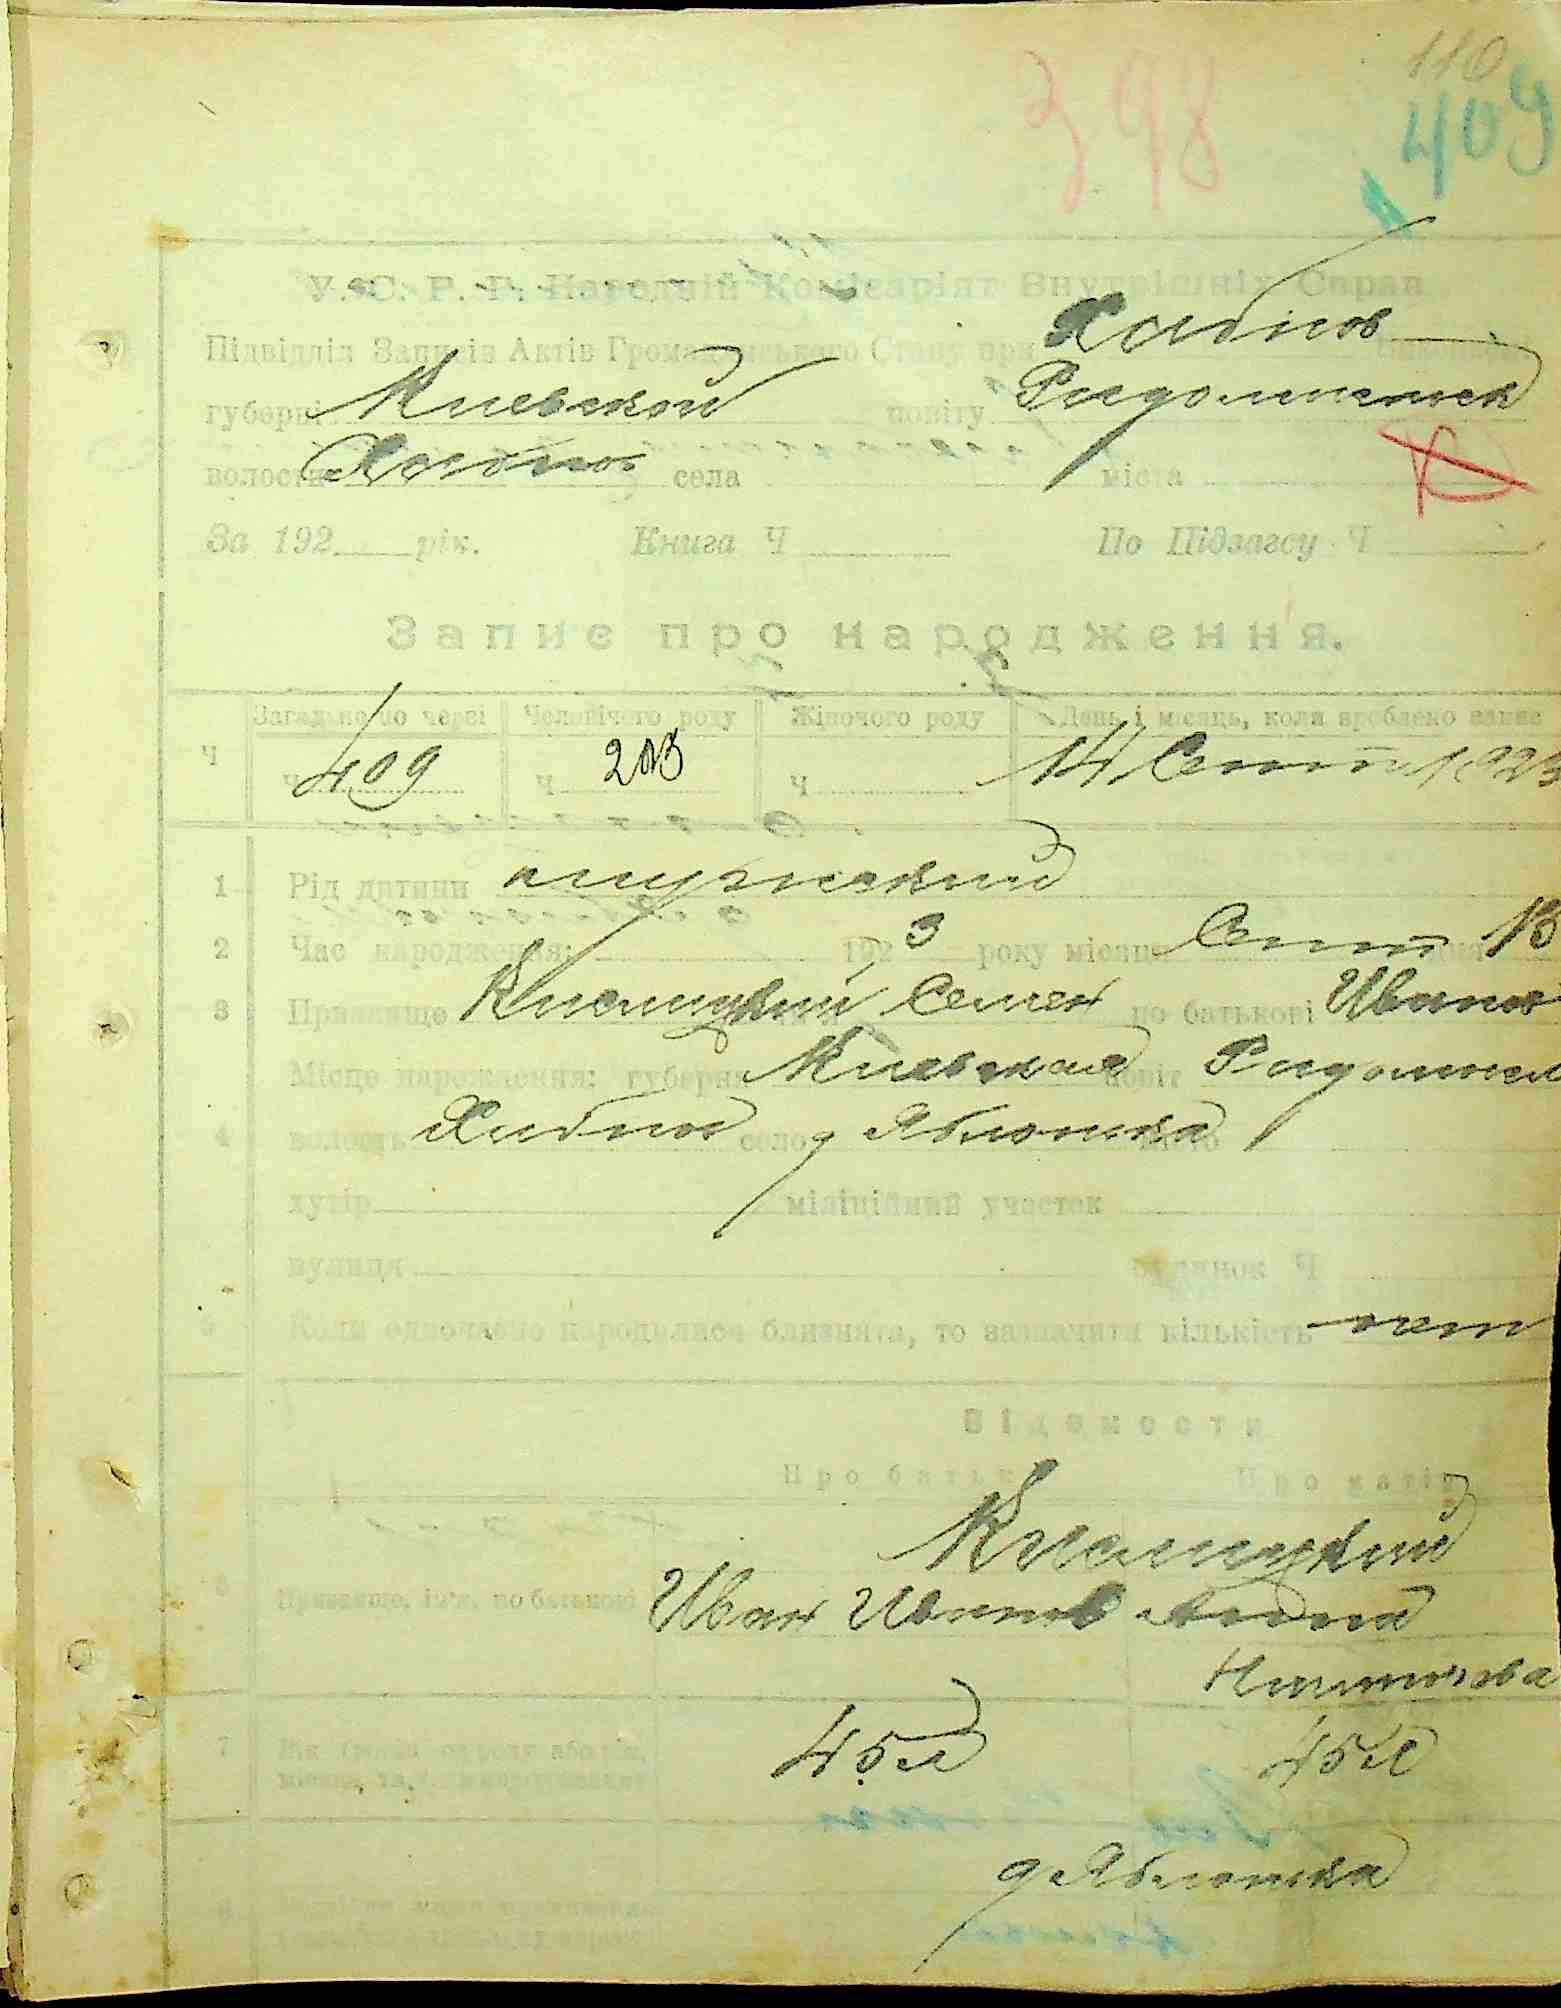 110
398
409
У. С. Р. Р. Народній Комісаріят Внутрішніх Справ
Підвідділ Записів Актів Громадянського Стану при Хабнов
губерні Киевской повіту Радомысльск
волости Хабнов села міста
За 192 рік. Книга Ч По Підзагсу Ч
Запис про народження.
Загальне по черзі Человічего роду Жіночого роду День і місяць, коли зроблено запис
Ч Ч 409 Ч 203 Ч 14 Сент 1923
1 Рід дитини мужский
2 Час народження: 1923 року місяця Сент 13
3 Прізвище Кислицкий Семен по батькові Иванов
Місце народження: губерня Киевская повіт Радомысл
4 волость Хабнов село д Яблонька місто
хутір міліційний участок
вулиця будинок Ч
5 Коли одночасно народилися близнята, то зазначити кількість нет
Відомости
Про батька Про матір
Кислицкий
6 Прізвище, ім'я, по батькові Иван Иванов Анна
7 45 л 45 л
д Яблонька
8